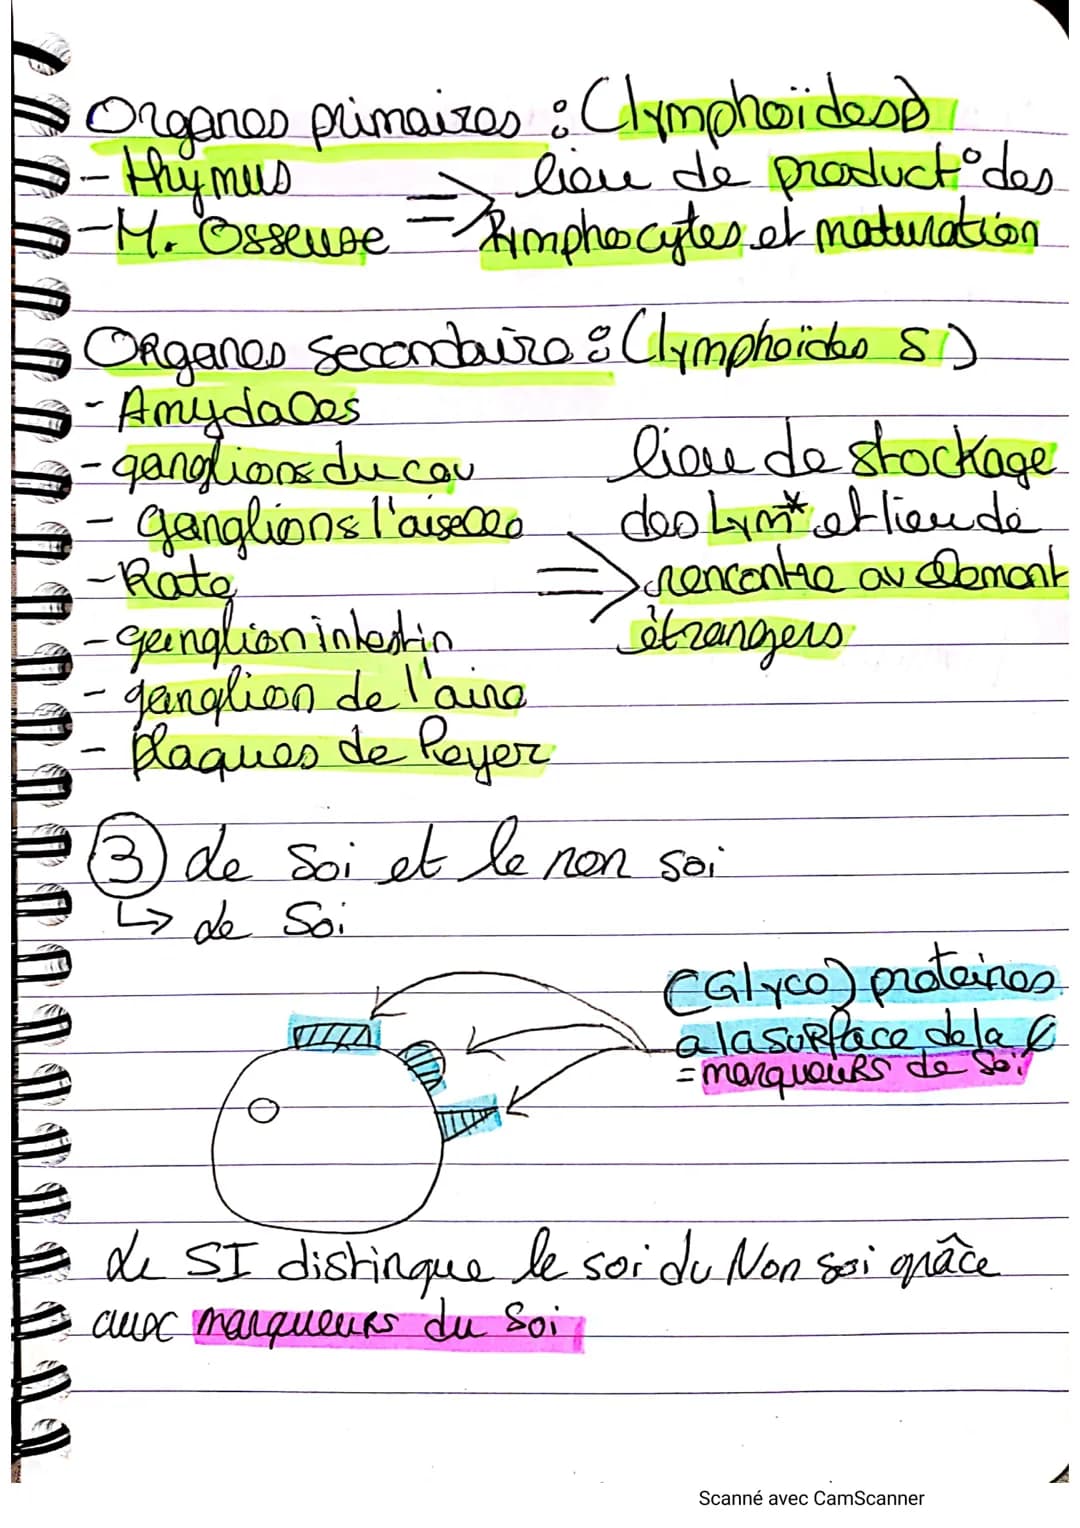 Organes primaires : (lymphoïdesP)
- Thymus
- M. Osseuse
=> lieu de product° des
lymphocytes et maturation
Organes secondaire : (lymphoïdes S)
- Amydales
- ganglions du cou
- ganglions l'aiselle
- Rate
- ganglion intestin
- ganglion de l'aine
- plaques de Peyer
=> lieu de stockage
des Lym* et lieu de
rencontre au element
étrangers
③ Le Soi et le non soi
↳ Le Soi
(Glyco) proteines
a la surface de la C
= marqueurs de Soi
Le SI distingue le soi du Non soi grâce
aux marqueurs du Soi
Scanné avec CamScanner